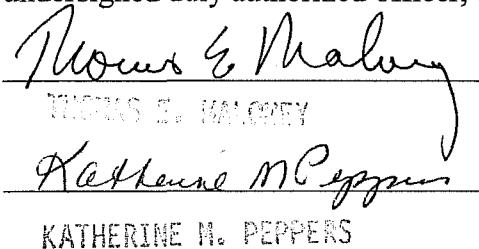 undersigned duly authorized officer,
Thomas E Maloney
THOMAS E. MALONEY
Katherine M Peppers
KATHERINE M. PEPPERS